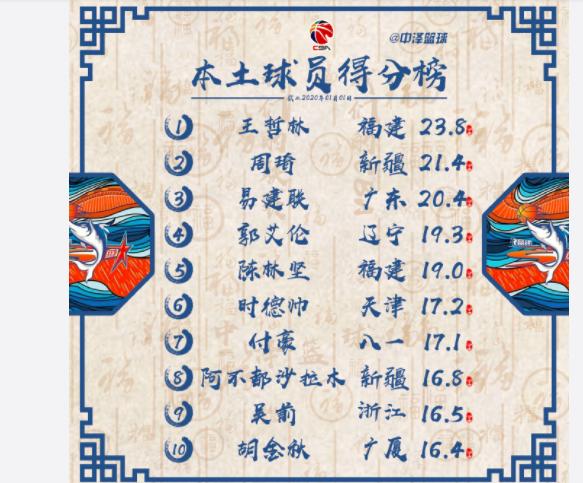 CBA
@中泽篮球
本土球员得分榜
截止2020年01月01日
1 王哲林 福建 23.8
2 周琦 新疆 21.4
3 易建联 广东 20.4
4 郭艾伦 辽宁 19.3
5 陈林坚 福建 19.0
6 时德帅 天津 17.2
7 付豪 八一 17.1
8 阿不都沙拉木 新疆 16.8
9 吴前 浙江 16.5
10 胡金秋 广厦 16.4